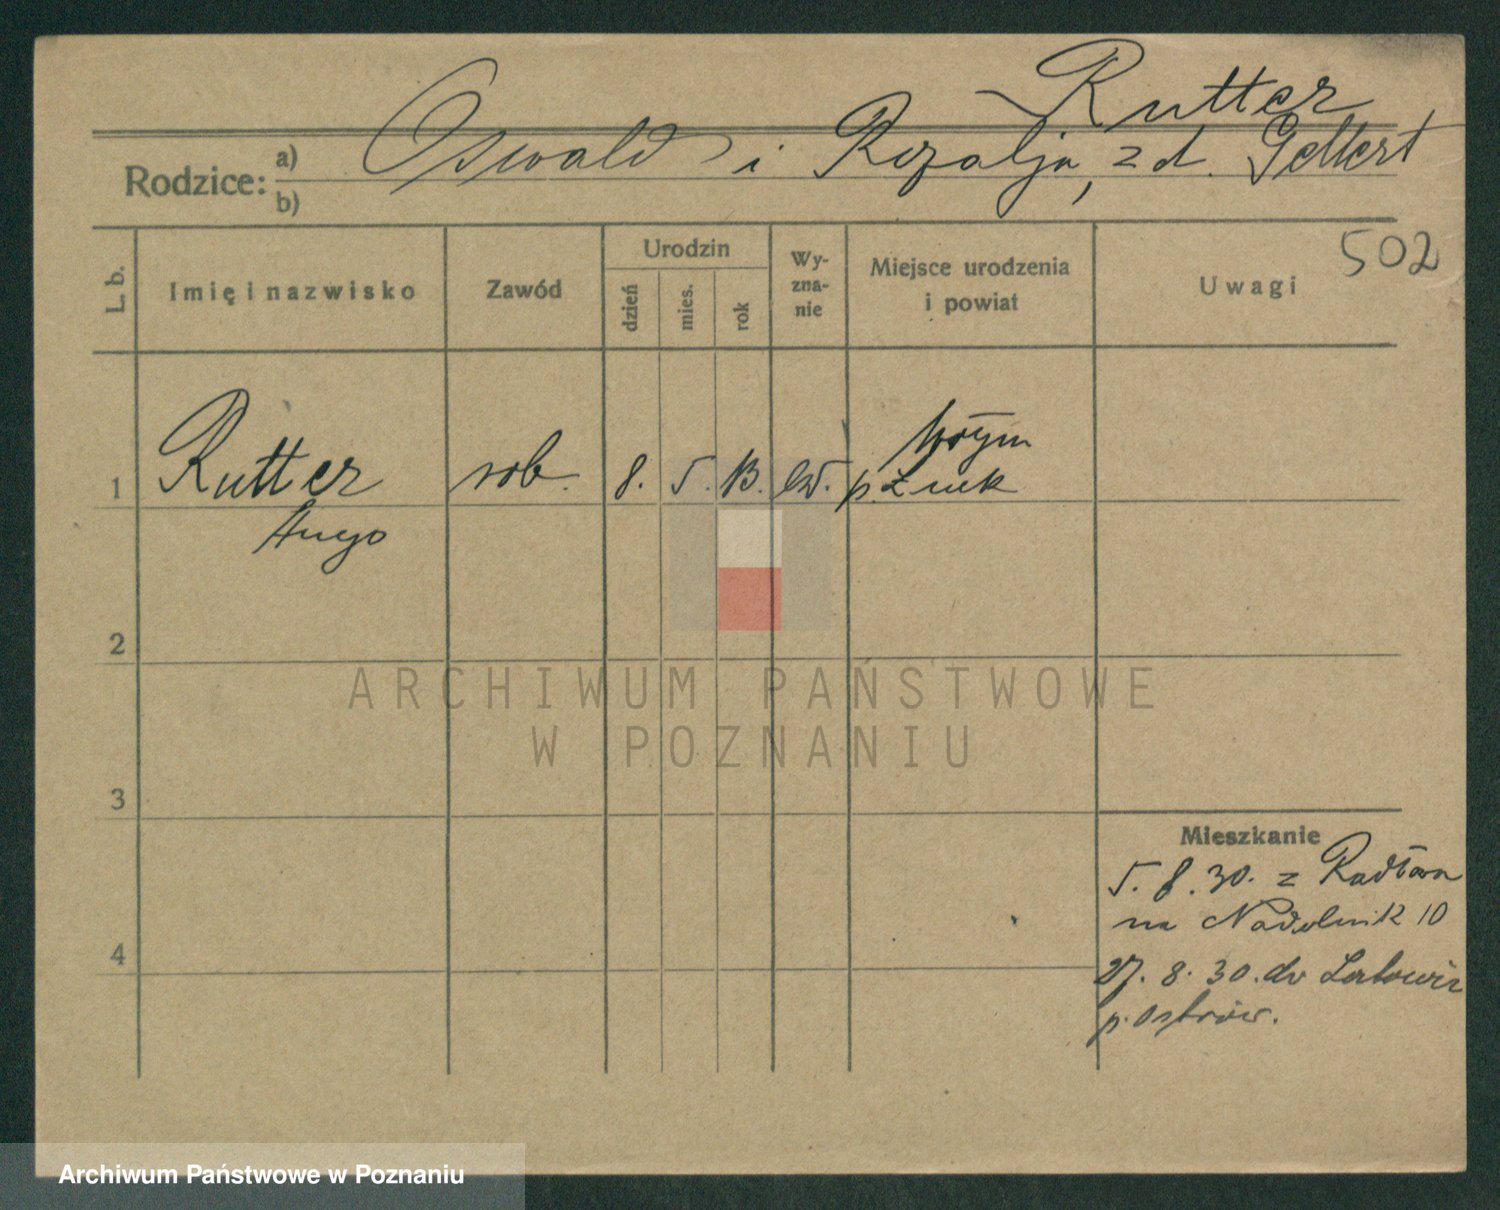 Rutter
Rodzice: a) Oswald i Rozalja, z d. Gellert
b)
502
L. b. Imię i nazwisko Zawód Urodzin dzień mies. rok Wy-zna-nie Miejsce urodzenia i powiat Uwagi
Wołyń
1 Rutter rob. 8. 5. 13. ew. p. Łuck
Hugo
2
ARCHIWUM PAŃSTWOWE
W POZNANIU
3
Mieszkanie
5. 8. 30. z Radłowa
na Nadolnik 10
4
27. 8. 30. do
p. Ostrów.
Archiwum Państwowe w Poznaniu